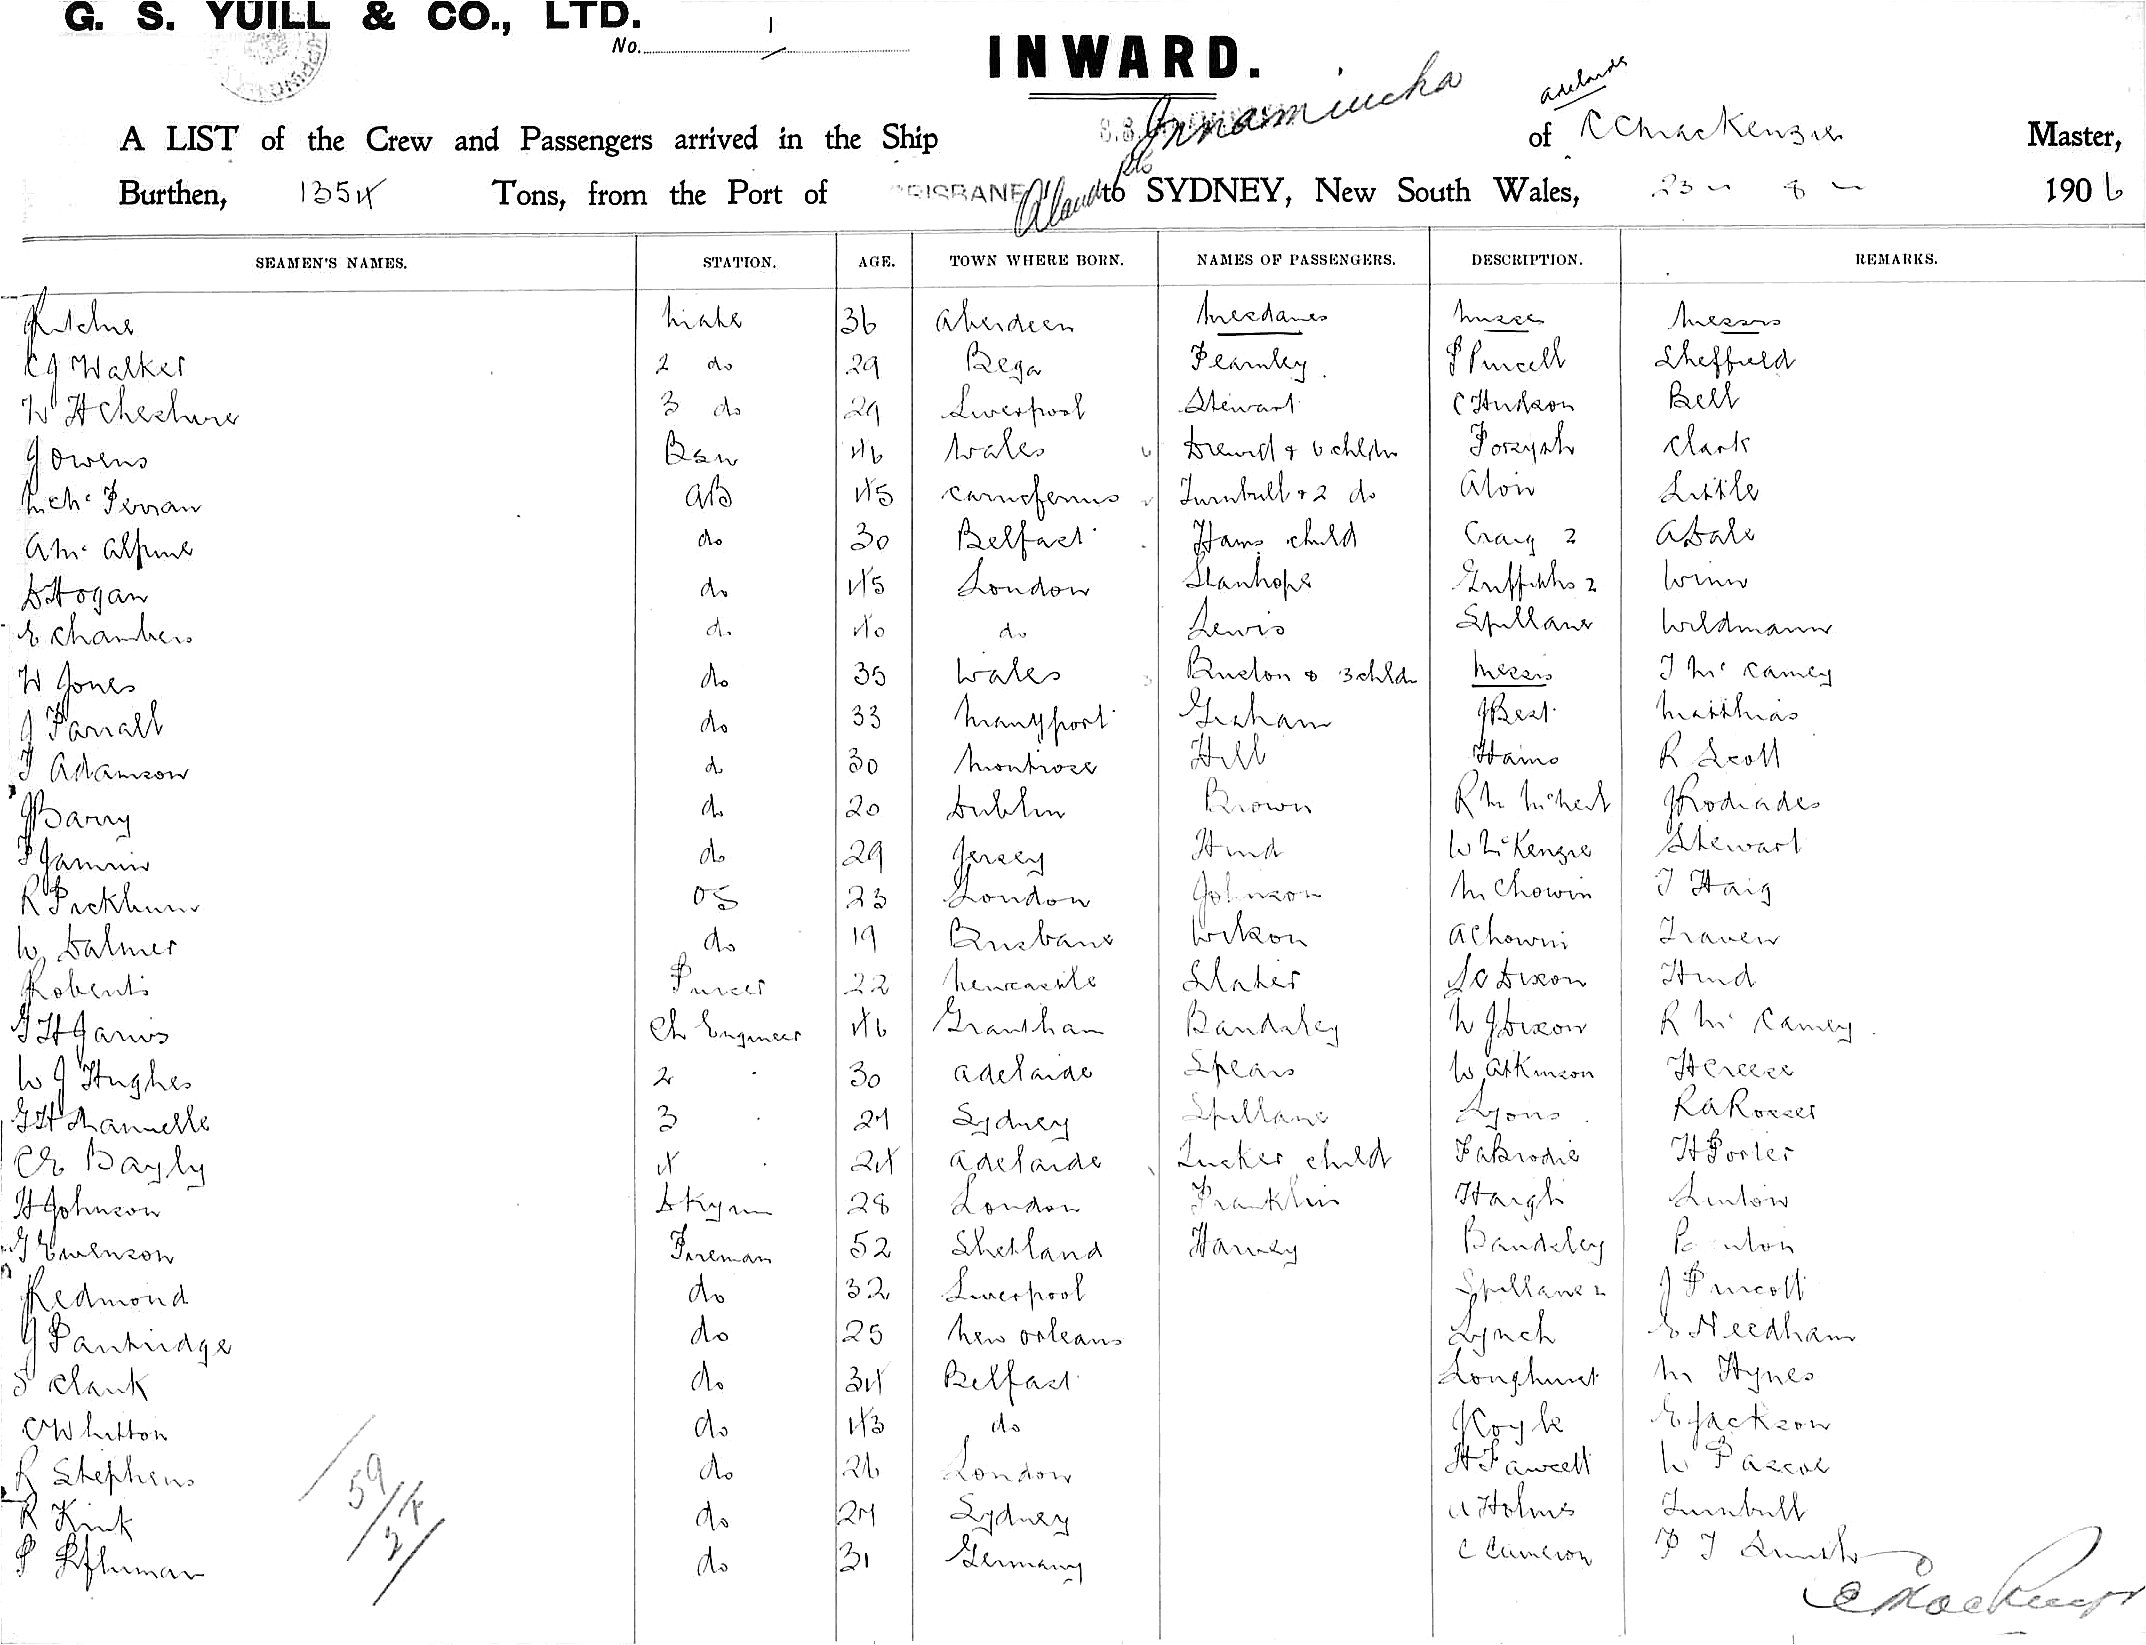 G. S. YUILL & CO., LTD.
No. 1
INWARD.
Adelaide
A LIST of the Crew and Passengers arrived in the Ship Innamincka of C C MacKenzie Master,
Burthen, 1354 Tons, from the Port of BRISBANE to SYDNEY, New South Wales, 23 - 8 - 1906
SEAMEN'S NAMES. STATION. AGE. TOWN WHERE BORN. NAMES OF PASSENGERS. DESCRIPTION. REMARKS.
Ritchie Mate 36 Aberdeen Mesdames Misses Messrs
C J Walker 2 do 29 Bega Fearnley P Purcell Sheffield
W H Cheshire 3 do 29 Liverpool Stewart C Hudson Bell
J Owens Bsn 46 Wales & 6 chldn Forsyth Clark
McFerran AB 45 Turnbull & 2 do Little
A McAlpine do 30 Belfast Hams child Craig 2 A Dale
D Hogan do 45 London Stanhope Griffiths 2 Winn
E Chambers do 40 do Lewis Spillane Wildmann
W Jones do 35 Wales Buxton & 3 chldn Messrs T McCamey
J Farrall do 33 Maryport Graham J Best Matthias
T Adamson do 30 Montrose Hill Hams R Scott
J Barry do 20 Dublin Brown R M J Rodiades
F Jammin do 29 Jersey Hind W McKenzie Stewart
R Packham OS 23 London Johnson M Chowin T Haig
W Dalmer do 19 Brisbane Wilson A Chowin Traven
Roberts Purser 22 Newcastle Slater S O Dixon Hind
T H Jarvis Ch Engineer 46 Grantham Bandsley W J Dixon R McCamey
W J Hughes 2 30 Adelaide Spears W Atkinson H Creese
G H Mannelle 3 27 Sydney Spillane Lyons R A Rosser
C E Bayly 4 24 Adelaide Tucker child F A Brodie H Porter
H Johnson Dkyman 28 London Franklin Haigh Linton
T Ewenson Fireman 52 Shetland Harvey Bandsley
Redmond do 32 Liverpool Spillane 2 J Purcell
J Partridge do 25 New Orleans Lynch E Needham
S Clark do 34 Belfast Longhurst M Hynes
C Whitton do 43 do J Coyle E Jackson
R Stephens do 26 London H Fawcett W Pascoe
R Kirk do 27 Sydney A Holmes Turnbull
P do 31 Germany C Cameron P T Smith
59/34
C MacKenzie